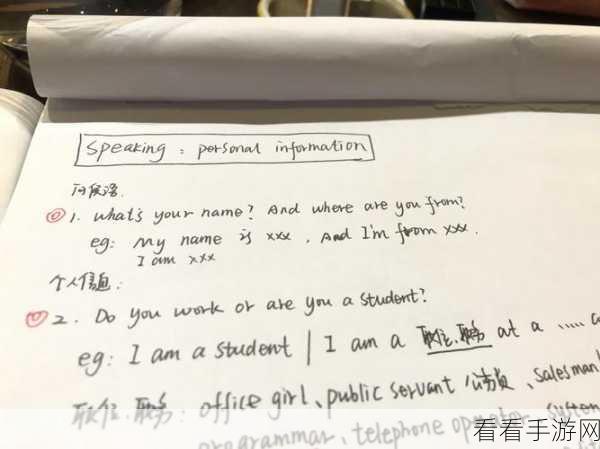 Speaking : personal information
问候语.
1. what's your name? And where are you from?
eg: My name is xxx , And I'm from xxx.
I am xxx
个人信息:
2. Do you work or are you a student?
eg: I am a student | I am a 职位.职务 at a ..... a
职位.职务: office girl、public servant 公务员、salesman
programmar、telephone operator、system
看看手游网